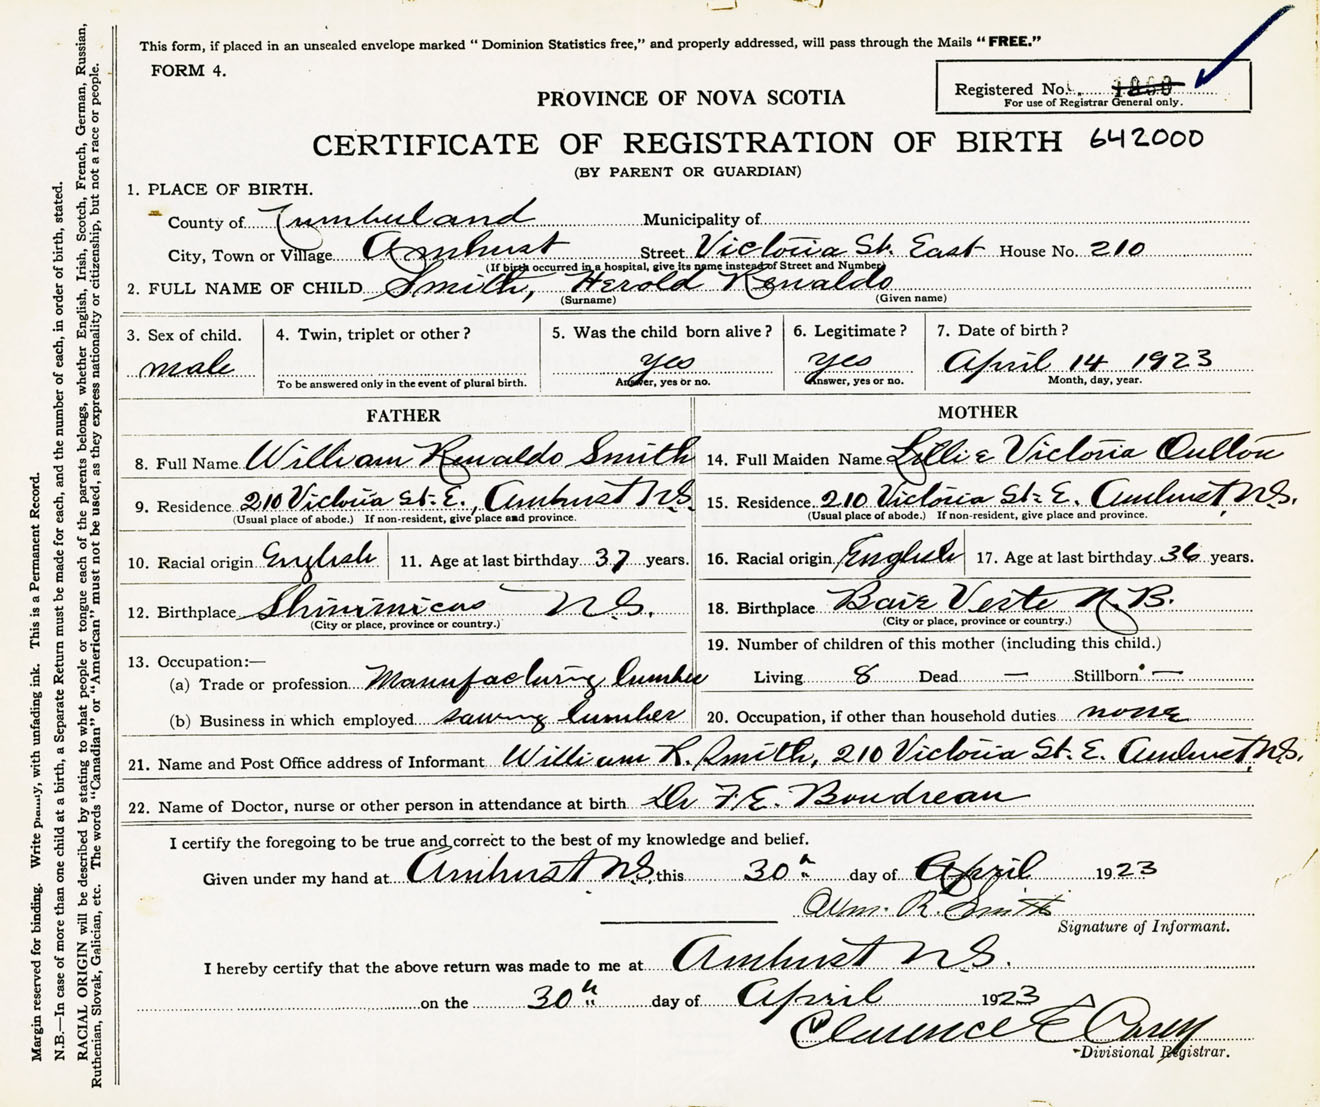 This form, if placed in an unsealed envelope marked “Dominion Statistics free,” and properly addressed, will pass through the Mails “FREE.”
FORM 4.
Registered No.
For use of Registrar General only.
PROVINCE OF NOVA SCOTIA
CERTIFICATE OF REGISTRATION OF BIRTH 642000
(BY PARENT OR GUARDIAN)
1. PLACE OF BIRTH.
County of Cumberland Municipality of
City, Town or Village Amherst Street Victoria St. East House No. 210
(If birth occurred in a hospital, give its name instead of Street and Number)
2. FULL NAME OF CHILD Smith, Herold Renaldo
(Surname) (Given name)
3. Sex of child. 4. Twin, triplet or other? 5. Was the child born alive? 6. Legitimate? 7. Date of birth?
male yes yes April 14 1923
To be answered only in the event of plural birth. Answer, yes or no. Answer, yes or no. Month, day, year.
FATHER MOTHER
8. Full Name William Renaldo Smith 14. Full Maiden Name Lillie Victoria Oulton
9. Residence 210 Victoria St. E., Amherst N.S. 15. Residence 210 Victoria St. E. Amherst, N.S.
(Usual place of abode.) If non-resident, give place and province. (Usual place of abode.) If non-resident, give place and province.
10. Racial origin English 11. Age at last birthday 37 years. 16. Racial origin English 17. Age at last birthday 36 years.
12. Birthplace Shinimicas N.S. 18. Birthplace Baie Verte N.B.
(City or place, province or country.) (City or place, province or country.)
19. Number of children of this mother (including this child.)
13. Occupation:—
(a) Trade or profession Manufacturing lumber Living 8 Dead — Stillborn —
(b) Business in which employed sawing lumber 20. Occupation, if other than household duties none
21. Name and Post Office address of Informant William R. Smith, 210 Victoria St. E. Amherst, N.S.
22. Name of Doctor, nurse or other person in attendance at birth Dr F. E. Boudreau
I certify the foregoing to be true and correct to the best of my knowledge and belief.
Given under my hand at Amherst N.S. this 30th day of April 1923
Wm. R. Smith
Signature of Informant.
I hereby certify that the above return was made to me at Amherst N.S.
on the 30th day of April 1923
Clarence E Casey
Divisional Registrar.
Margin reserved for binding. Write plainly, with unfading ink. This is a Permanent Record.
N.B.—In case of more than one child at a birth, a Separate Return must be made for each, and the number of each, in order of birth, stated.
RACIAL ORIGIN will be described by stating to what people or tongue each of the parents belongs, whether English, Irish, Scotch, French, German, Russian,
Ruthenian, Slovak, Galician, etc. The words “Canadian” or “American” must not be used, as they express nationality or citizenship, but not a race or people.